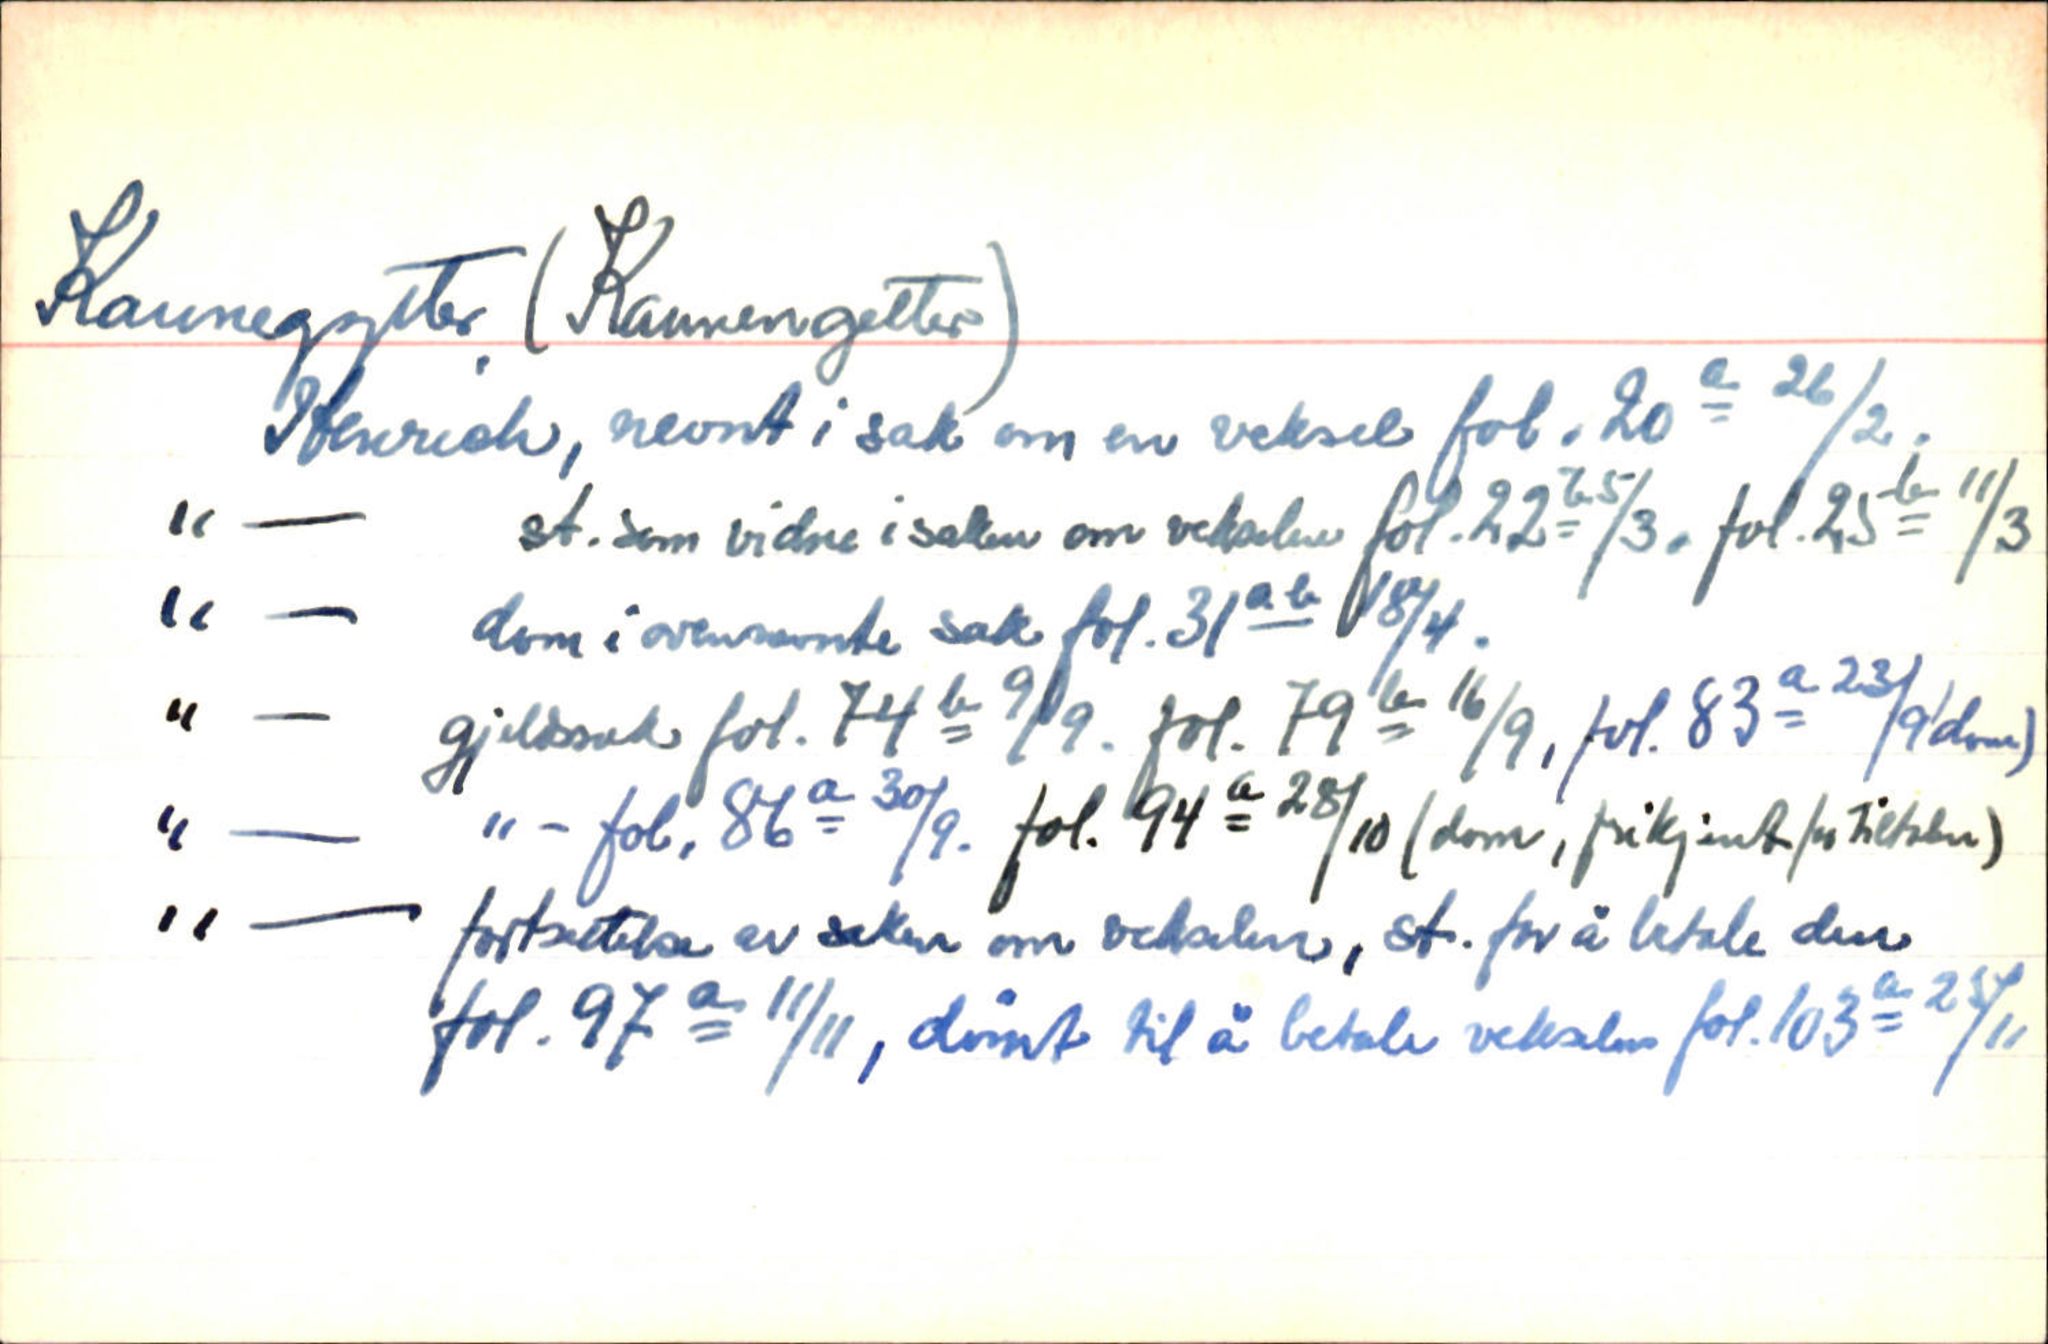 Kannegyter (Kannengetter)
Henrich, nevnt i sak om en veksel fol. 20 a 26/2.
" — st. som vidne i saken om vekselen fol. 22 b 5/3. fol. 25 b 11/3
" — dom i ovennevnte sak fol. 31 a b 18/4.
" — gjeldssak fol. 74 b 9/9. fol. 79 b 16/9, fol. 83 a 23/9 (dom)
" — " – fol. 86 a 30/9. fol. 94 a 28/10 (dom, frikjent for tiltalen)
" — fortsettelse av saken om vekselen, st. for å betale den
fol. 97 a 11/11, dømt til å betale vekselen fol. 103 a 25/11